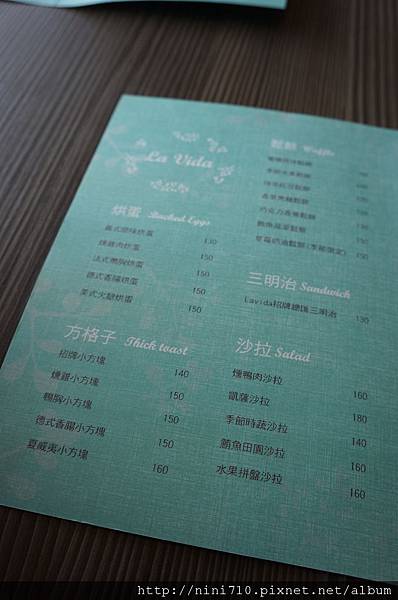 La Vida
烘蛋 Baked Eggs
義式原味烘蛋 130
燻雞肉烘蛋 150
法式鴨胸烘蛋 150
德式香腸烘蛋 150
美式火腿烘蛋 150
方格子 Thick toast
招牌小方塊 140
燻雞小方塊 150
鴨胸小方塊 150
德式香腸小方塊 150
夏威夷小方塊 160
鬆餅 Waffle
巧克力香蕉鬆餅
草莓奶油鬆餅(季節限定) 150
三明治 Sandwich
Lavida招牌總匯三明治 190
沙拉 Salad
燻鴨肉沙拉 160
凱薩沙拉 180
季節時蔬沙拉 140
鮪魚田園沙拉 160
水果拼盤沙拉 160
http://nini710.pixnet.net/album